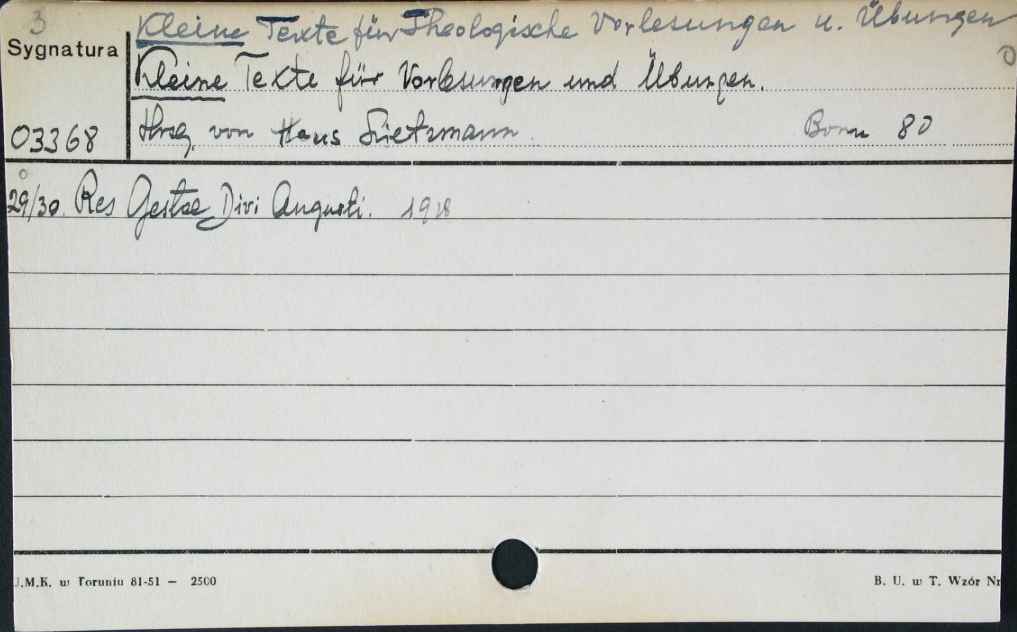 3
Kleine Texte für Theologische Vorlesungen u. Übungen
Sygnatura
Kleine Texte für Vorlesungen und Übungen.
03368 Hrsg. von Hans Lietzmann. Bonn 80
29/30. Res Gestae Divi Augusti. 1928
U.M.K. w Toruniu 81-51 — 2500 B. U. w T. Wzór Nr